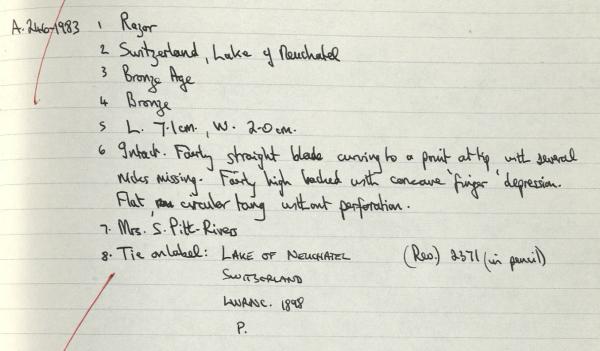 A.246-1983 1 Razor
2 Switzerland, Lake of Neuchatel
3 Bronze Age
4 Bronze
5 L. 7.1cm., W. 2.0cm.
6 Intact. Fairly straight blade curving to a point at tip with several
nicks missing. Fairly high backed with concave 'finger' depression.
Flat, circular tang without perforation.
7. Mrs. S. Pitt-Rivers
8. Tie on label: LAKE OF NEUCHATEL (Rev.) 2371 (in pencil)
SWITZERLAND
1898
P.